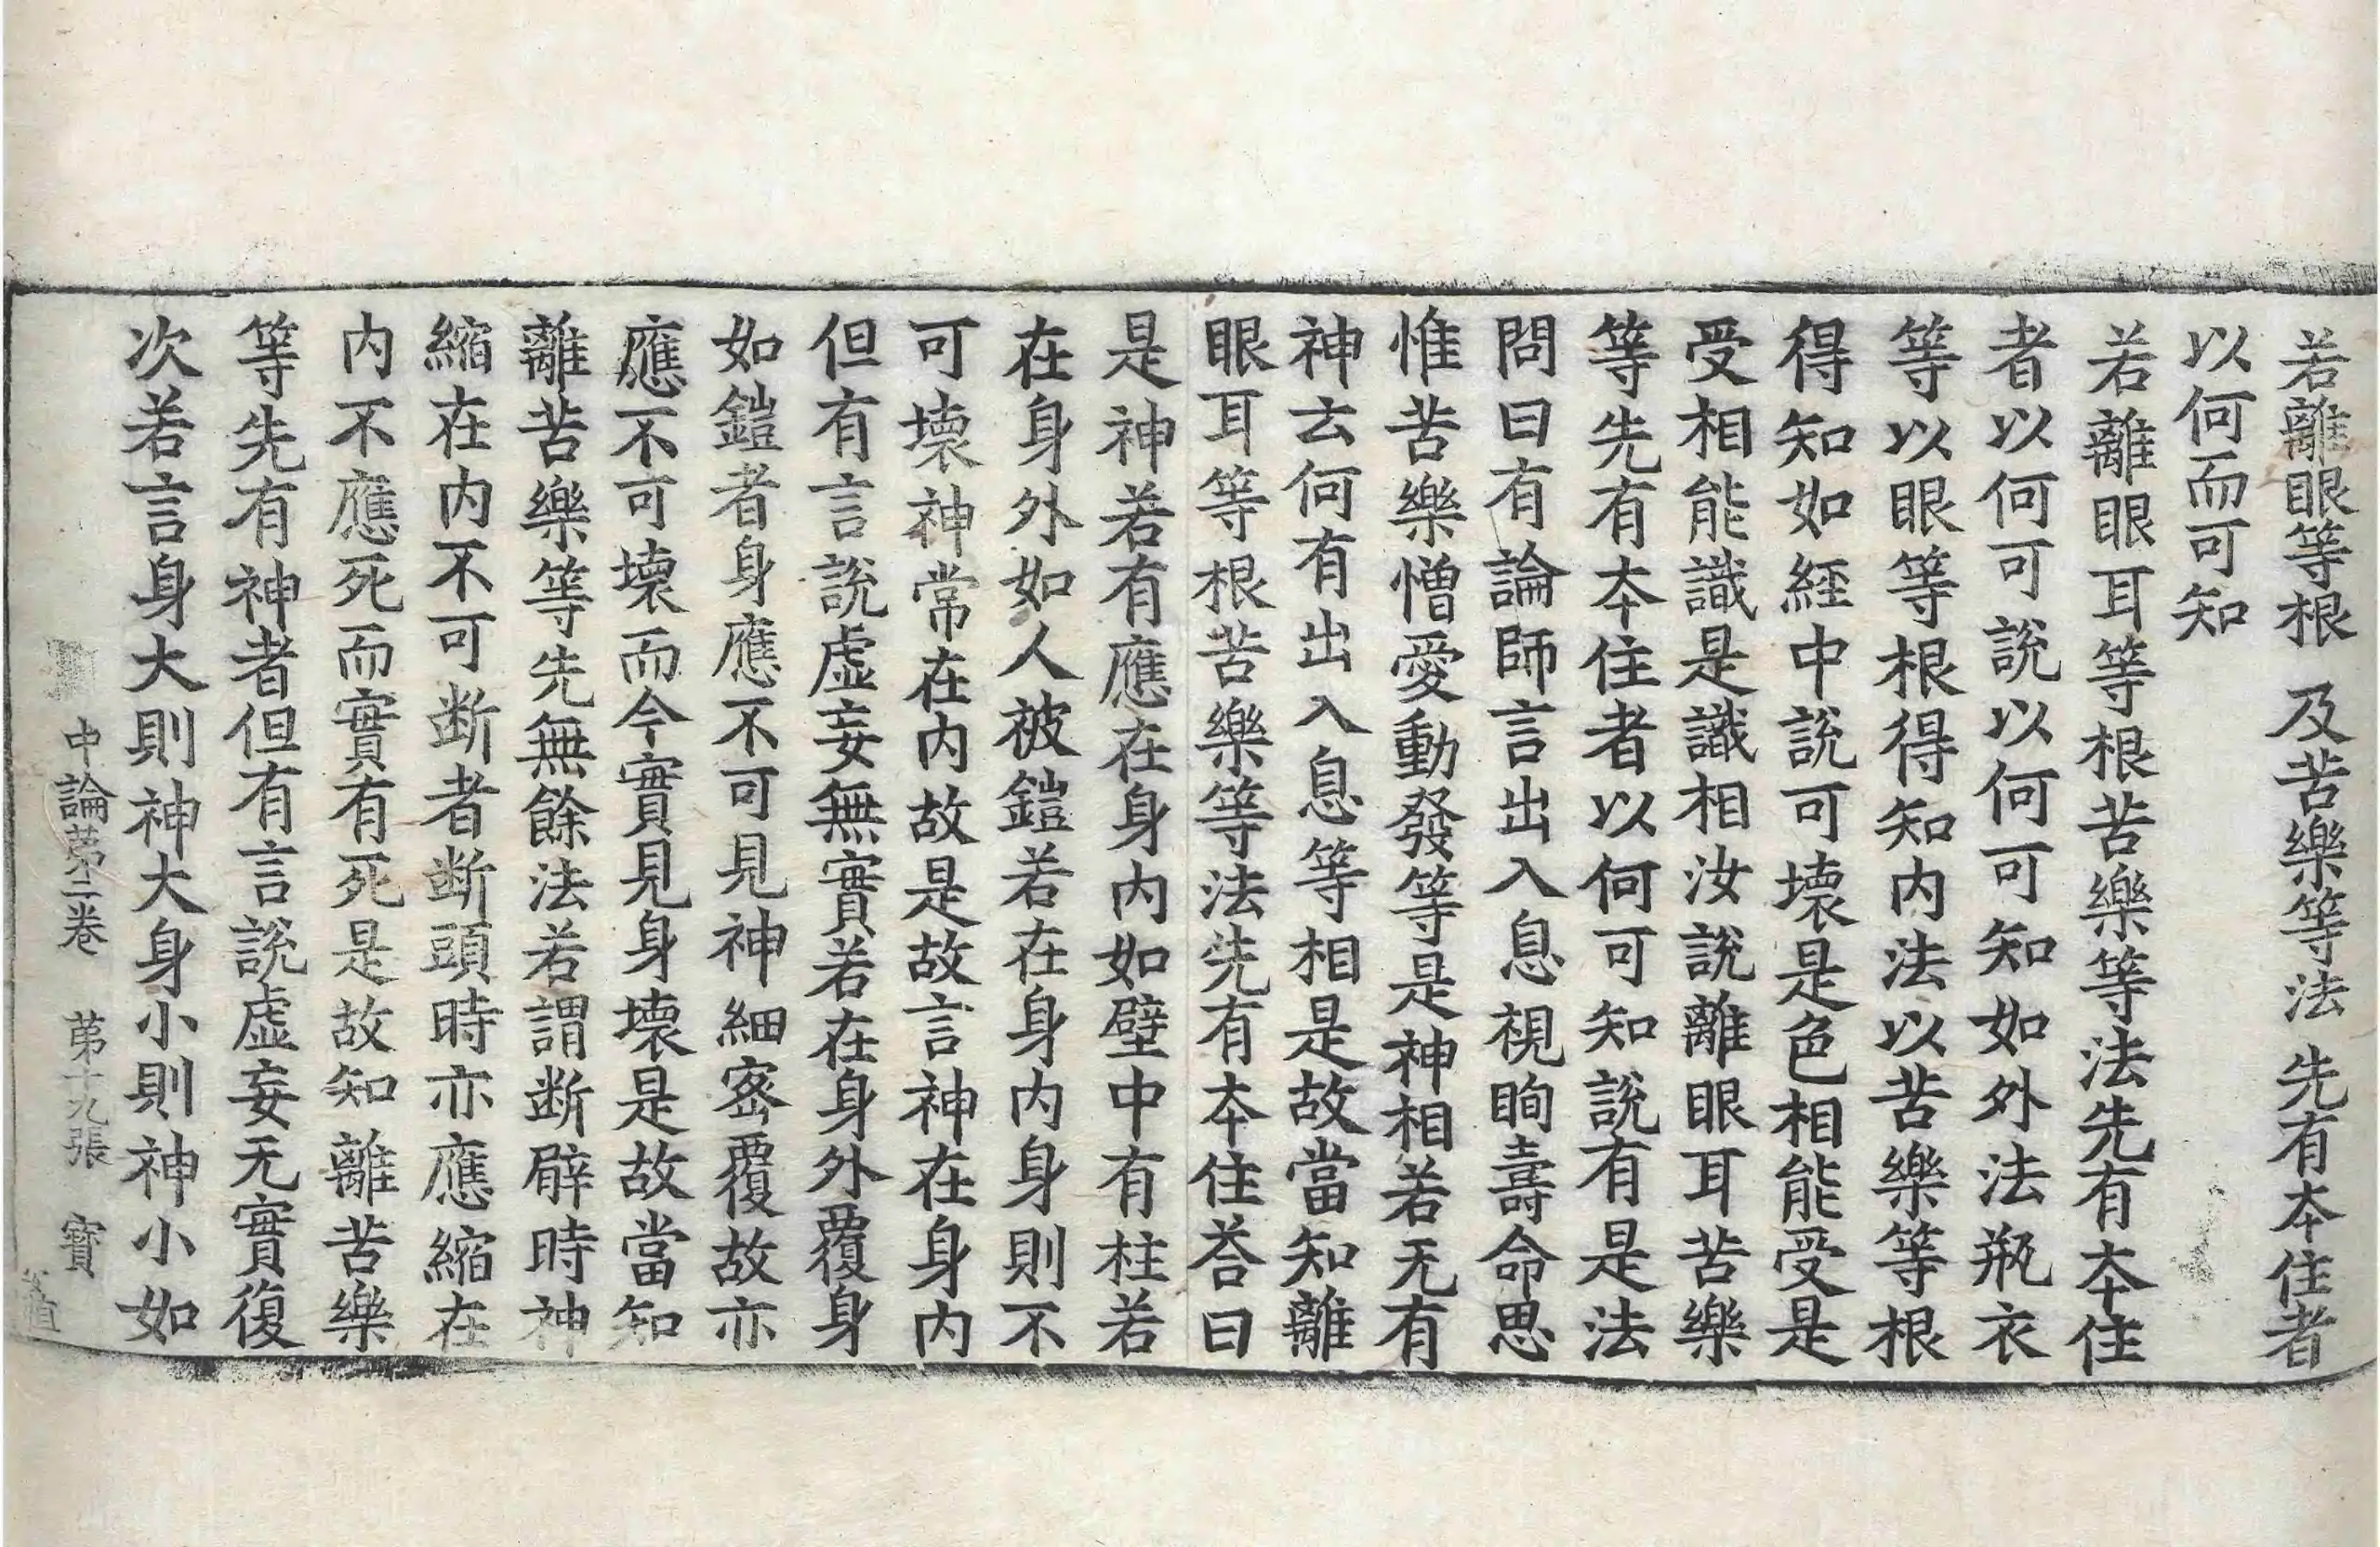 若離眼等根 及苦樂等法 先有夲住者
以何而可知
若離眼耳等根苦樂等法先有夲住
者以何可說以何可知如外法瓶衣
等以眼等根得知内法以苦樂等根
得知如經中說可壞是色相能受是
受相能識是識相汝說離眼耳苦樂
等先有夲住者以何可知說有是法
問曰有論師言出入息視眴壽命思
惟苦樂憎愛動發等是神相若无有
神云何有出入息等相是故當知離
眼耳等根苦樂等法先有夲住荅曰
是神若有應在身内如壁中有柱若
在身外如人被鎧若在身内身則不
可壞神常在内故是故言神在身内
但有言說虛妄無實若在身外覆身
如鎧者身應不可見神細密覆故亦
應不可壞而今實見身壞是故當知
離苦樂等先無餘法若謂断臂時神
縮在内不可断者断頭時亦應縮在
内不應死而實有死是故知離苦樂
等先有神者但有言說虛妄无實復
次若言身大則神大身小則神小如
中論第二卷 第十九張 寶